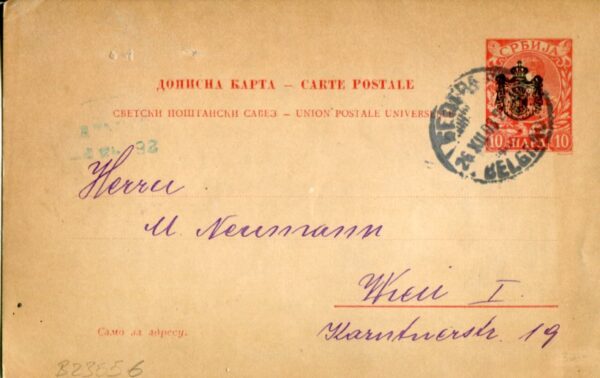 СРБИЈА
ДОПИСНА КАРТА — CARTE POSTALE
СВЕТСКИ ПОШТАНСКИ САВЕЗ — UNION POSTALE UNIVERSELLE
10 ПАРА 10
BELGRADE
26
Herrn
M. Neumann
Wien I.
Karntnerstr. 19
Само за адресу.
B23556